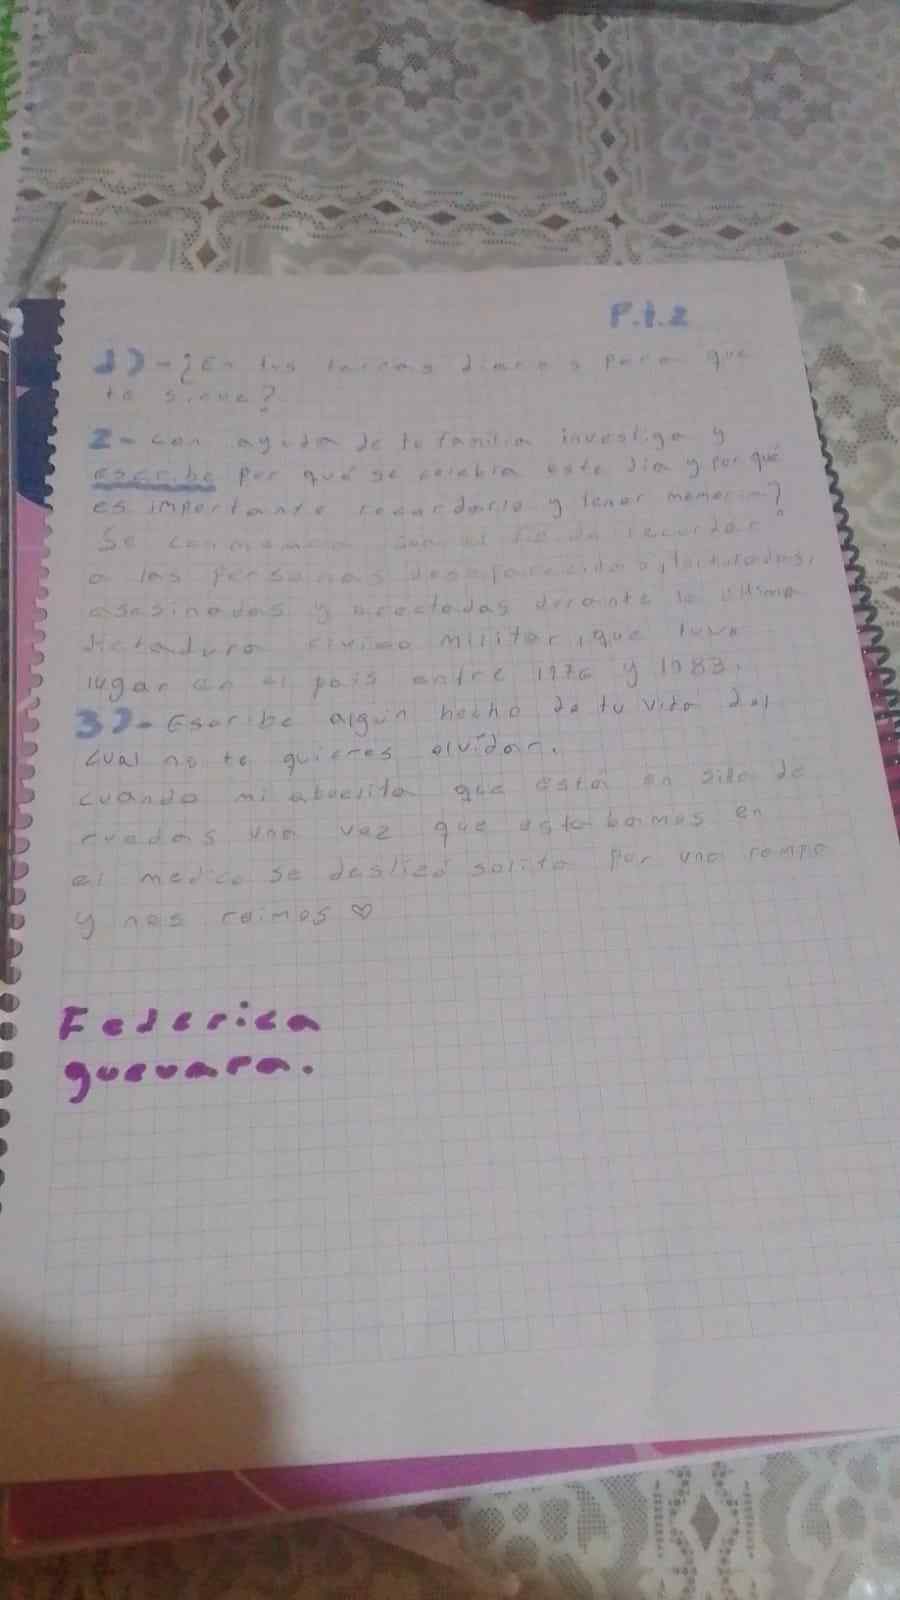 P.t.2
1)-¿En tus tareas diarias para que
te sirve?
2- con ayuda de tu familia investiga y
escribe por qué se celebra este día y por qué
es importante recordarlo y tener memoria?
Se conmemora con el fin de recordar
a las personas desaparecidas, torturadas,
asesinadas y afectadas durante la última
dictadura cívico militar, que tuvo
lugar en el país entre 1976 y 1983.
3)- Escribe algún hecho de tu vida del
cual no te quieres olvidar.
cuando mi abuelita que está en silla de
ruedas una vez que estabamos en
el medico se deslizó solita por una rampa
y nos reimos ♡
Federica
guevara.